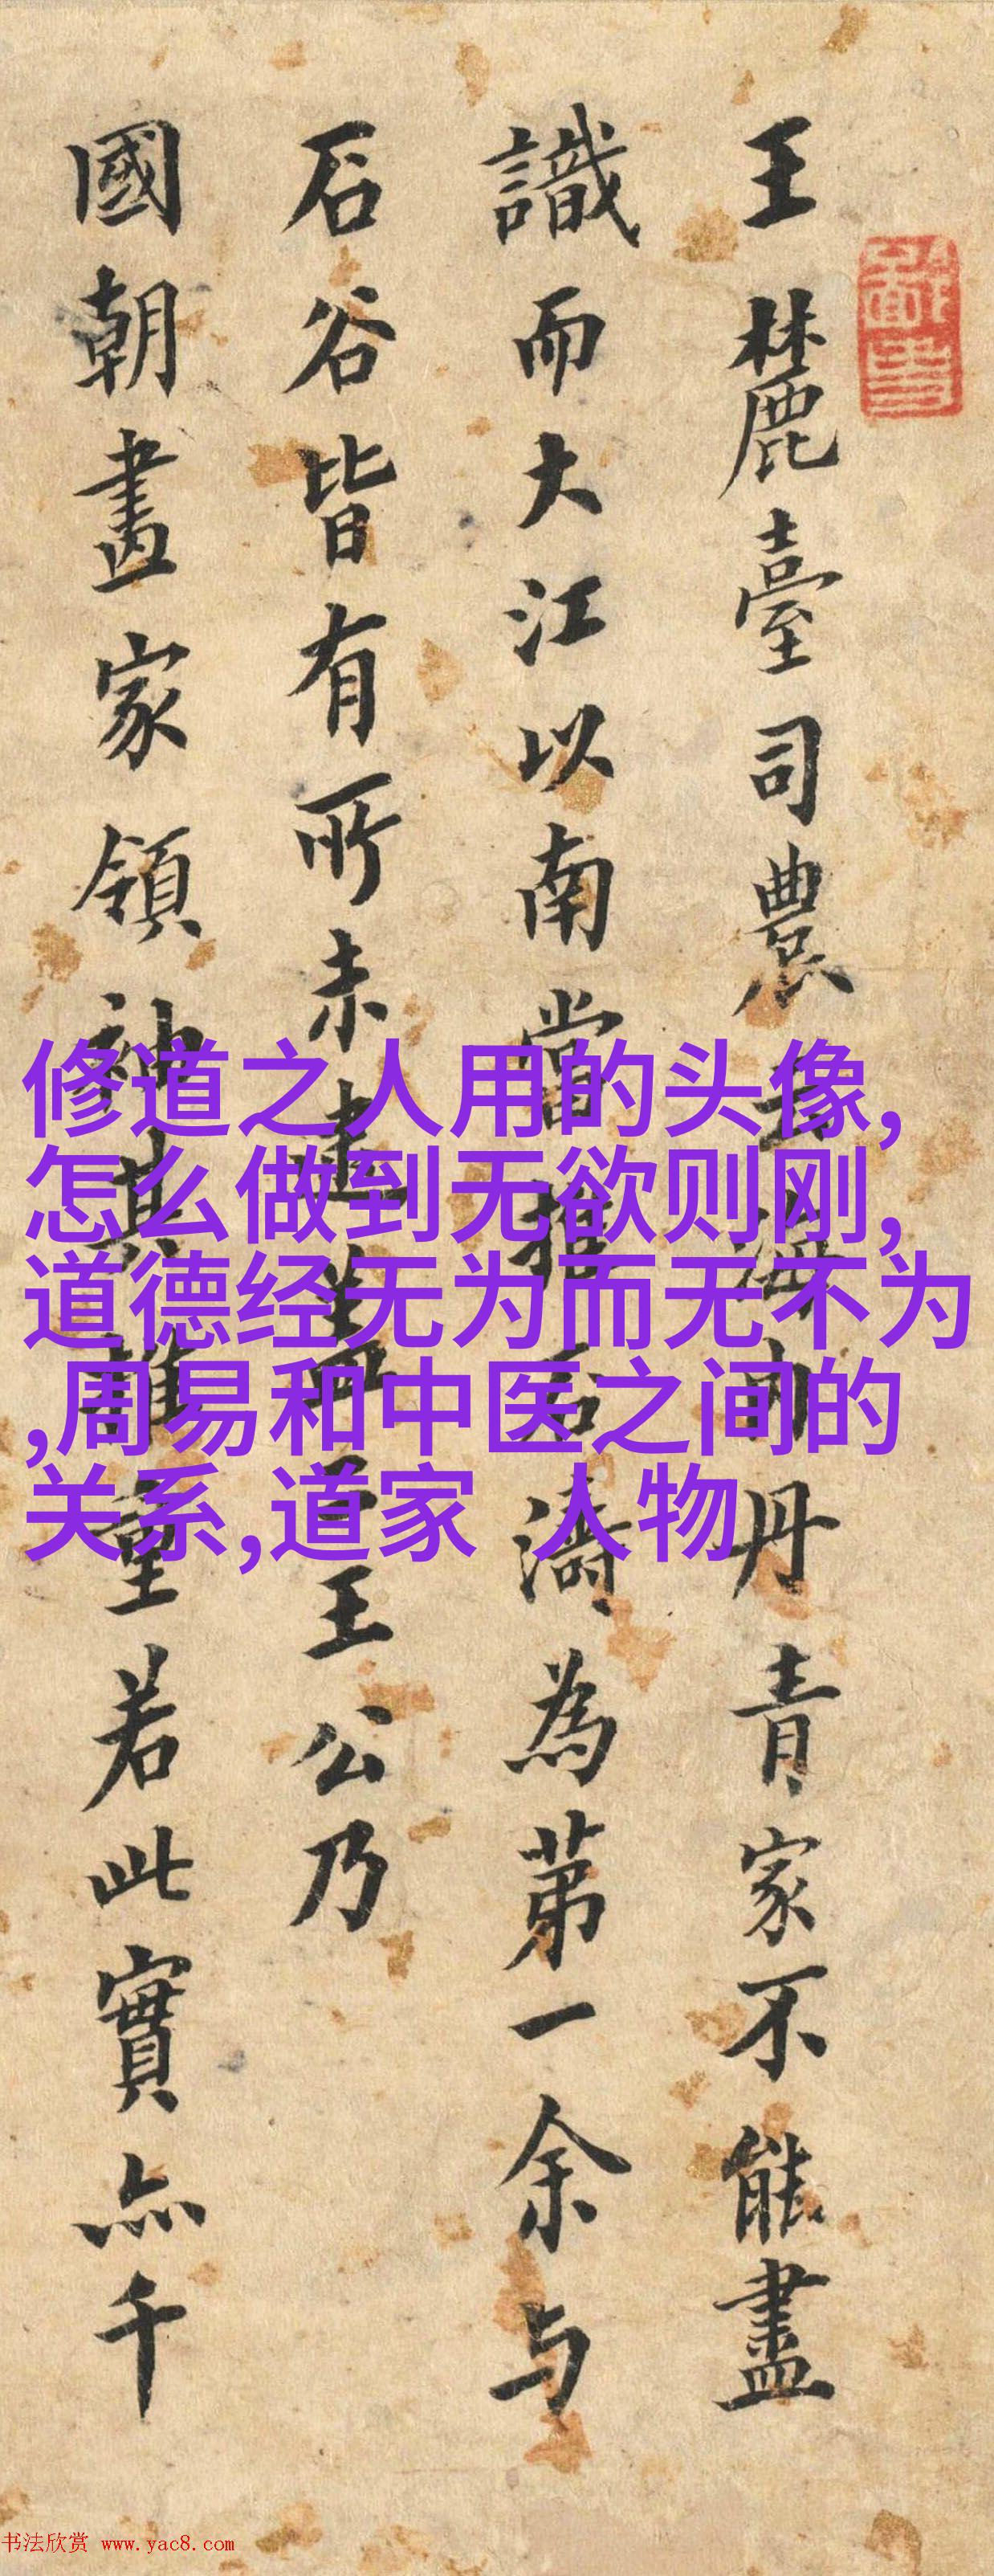 王麓臺司農云海内丹青家不能盡
識而大江以南當推石濤為第一余与
石谷皆有所未逮王公乃
國朝畫家領袖其推重若此實亦千
修道之人用的头像,
怎么做到无欲则刚,
道德经无为而无不为
,周易和中医之间的
关系,道家 人物
书法欣赏 www.yac8.com